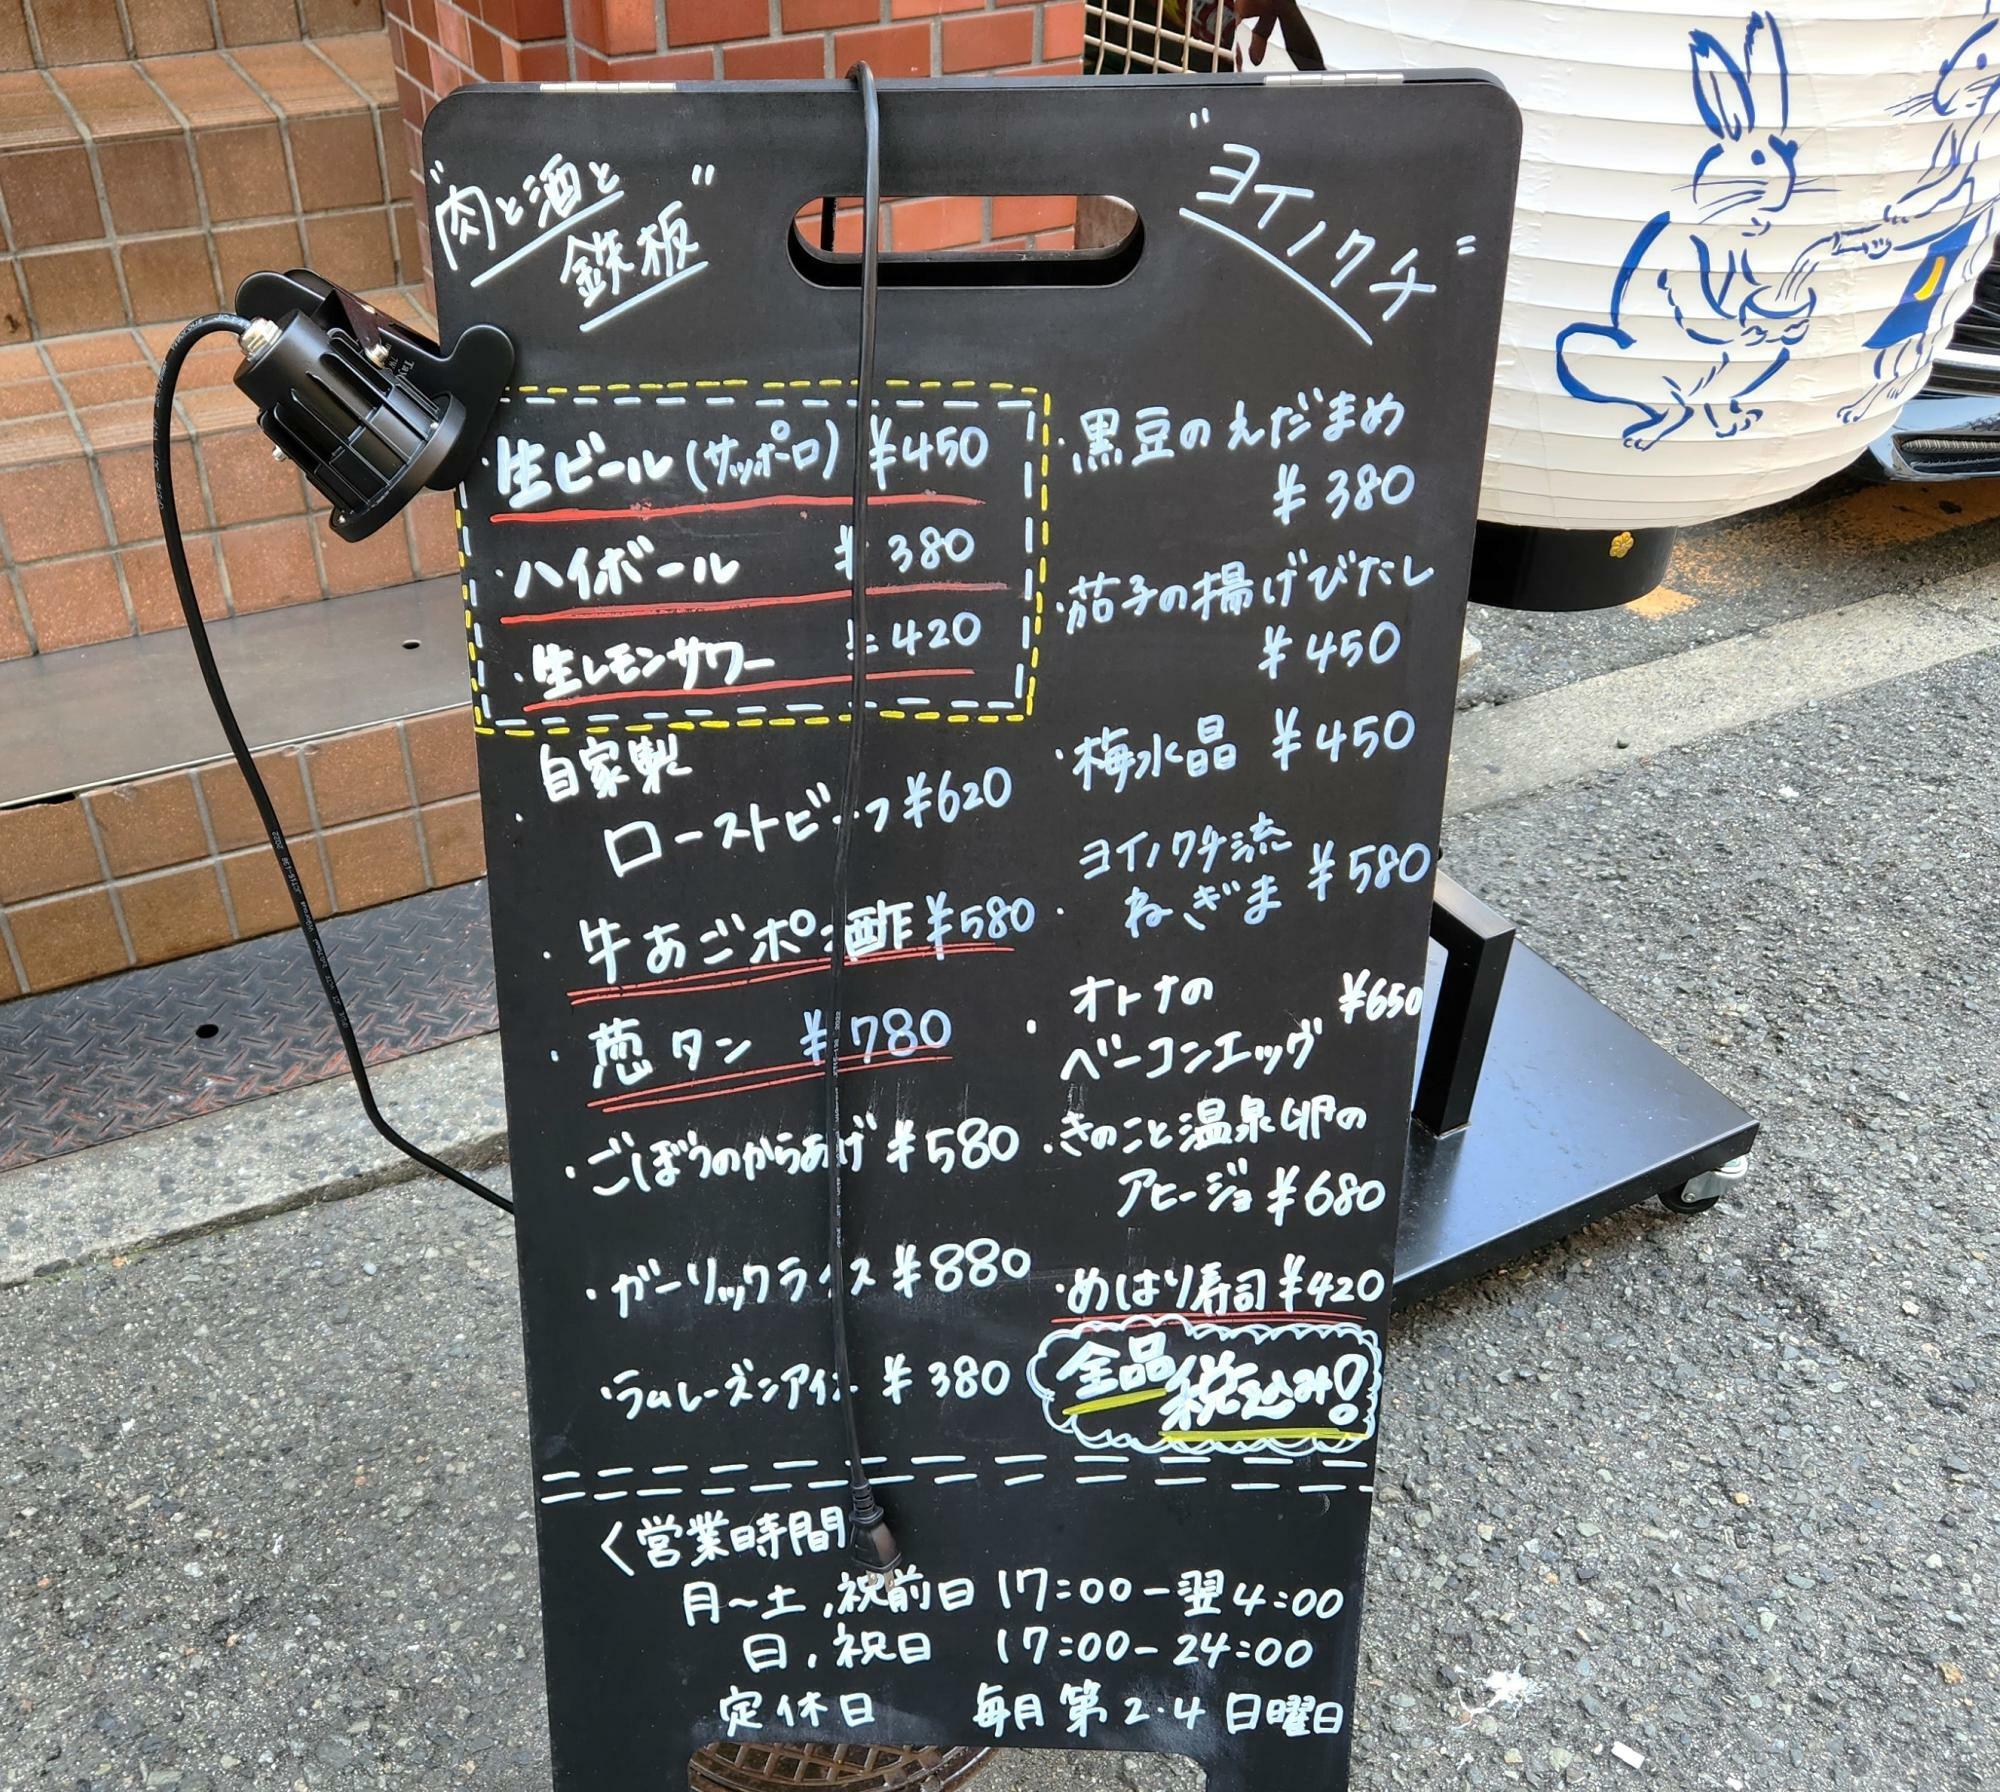 "肉と酒と
鉄板"
"ヨイノクチ"
・生ビール(サッポロ) ¥450
・ハイボール ¥380
・生レモンサワー ¥420
自家製
・ローストビーフ ¥620
・牛あごポン酢 ¥580
・葱タン ¥780
・ごぼうのからあげ ¥580
・ガーリックライス ¥880
・ラムレーズンアイス ¥380
・黒豆のえだまめ
¥380
・茄子の揚げびたし
¥450
・梅水晶 ¥450
ヨイノクチ流
・ねぎま ¥580
・オトナの
ベーコンエッグ ¥650
・きのこと温泉卵の
アヒージョ ¥680
・めはり寿司 ¥420
全品
税込み!
〈営業時間
月〜土,祝前日 17:00-翌4:00
日,祝日 17:00-24:00
定休日 毎月第2・4日曜日